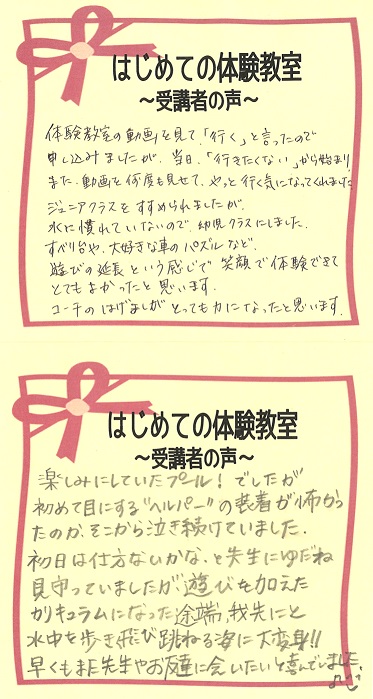 はじめての体験教室
～受講者の声～
体験教室の動画を見て、「行く」と言ったので
申し込みましたが、当日、「行きたくない」から始まり、
また、動画を何度も見せて、やっと行く気になってくれました。
ジュニアクラスをすすめられましたが、
水に慣れていないので、幼児クラスにしました。
すべり台や、大好きな車のパズルなど、
遊びの延長という感じで笑顔で体験できて
とてもよかったと思います。
コーチのはげましがとっても力になったと思います。
はじめての体験教室
～受講者の声～
楽しみにしていたプール！でしたが
初めて目にする"ヘルパー"の装着が怖かっ
たのか、そこから泣き続けていました。
初日は仕方ないかな、と先生にゆだね
見守っていましたが、遊びを加えた
カリキュラムになった途端、我先にと
水中を歩き飛び跳ねる姿に大変身!!
早くもまた先生やお友達に会いたいと喜んでいました♪